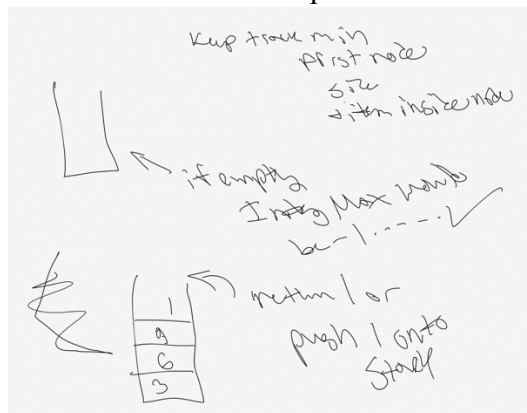 Keep track min
first node
size
item inside node
if empty
Max would
be - 1 - - - - -
return 1 or
push 1 onto
stack
1
9
6
3